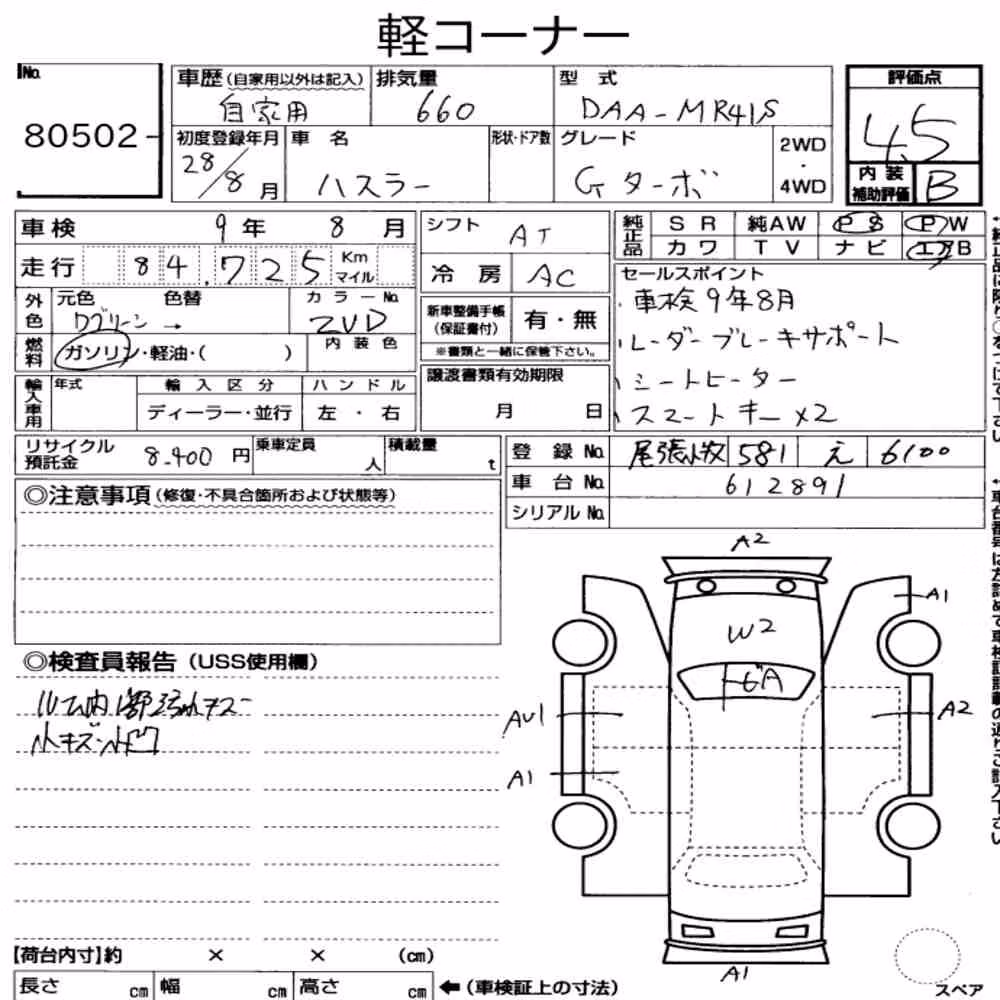 軽コーナー
No.
80502-
車歴(自家用以外は記入) 自家用
排気量 660
型式 DAA-MR41S
評価点 4.5
初度登録年月 28/8月
車名 ハスラー
形状・ドア数
グレード Gターボ
2WD・4WD
内装補助評価 B
車検 9年 8月
走行 84,725 Km マイル
外色 元色 色替
カラーNo. ZVD
燃料 ガソリン・軽油・( )
内装色
輸入車用 年式 輸入区分 ハンドル
ディーラー・並行 左・右
シフト AT
冷房 AC
新車整備手帳(保証書付) 有・無
※書類と一緒に保管下さい。
譲渡書類有効期限
月 日
純正品 SR 純AW PS PW
カワ TV ナビ エアB
セールスポイント
車検9年8月
レーダーブレーキサポート
シートヒーター
スマートキーx2
リサイクル預託金 8.400円
乗車定員 人
積載量 t
登録No. 尾張小牧 581 え 6100
車台No. 612891
シリアルNo.
◎注意事項(修復・不具合箇所および状態等)
◎検査員報告(USS使用欄)
小キズ・小凹
A2
A1
W2
AU1
A2
A1
A1
【荷台内寸】約 × × (cm)
長さ cm 幅 cm 高さ cm ←(車検証上の寸法)
スペア